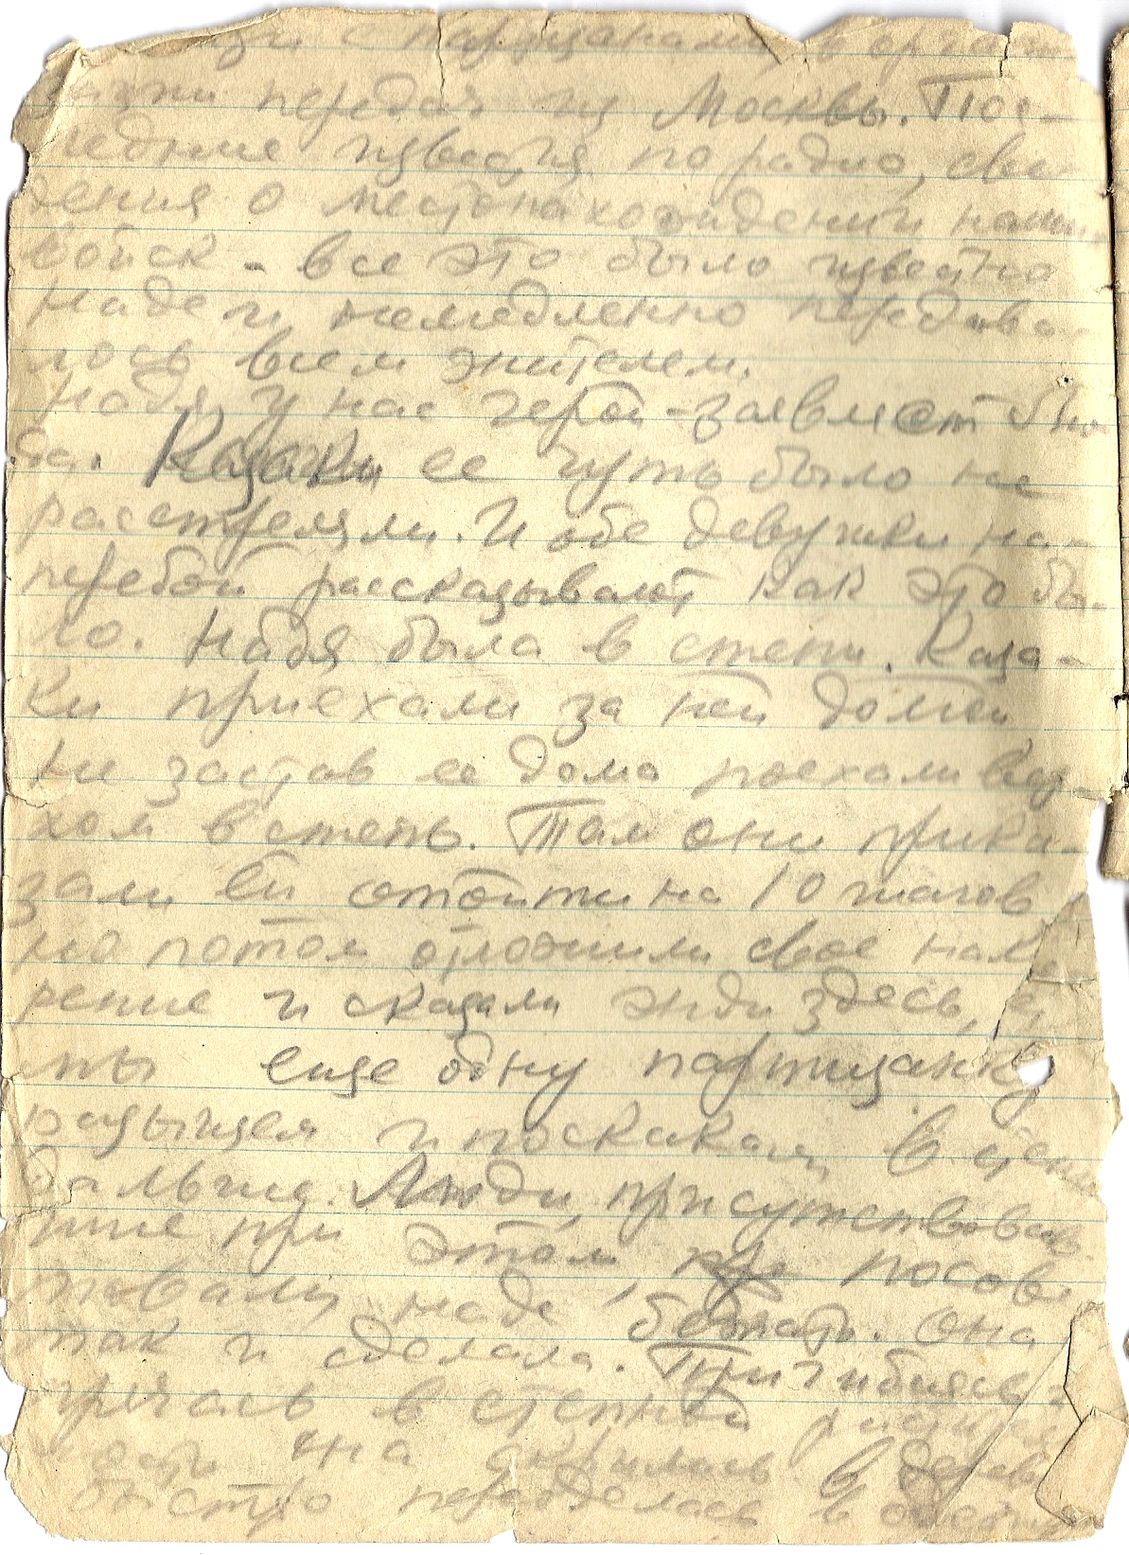 с партизанами
передач из Москвы. Пос-
ледние известия по радио, све
дения о местонахождении наши
войск - все это было известно
Наде и немедленно передава-
лось всем жителем.
Надя у нас герой - заявляет
Казаки ее чуть было не
расстреляли. И обе девушки на-
перебой рассказывают как это бы-
ло. Надя была в степи. Каза-
ки приехали за ней домой
не застав ее дома поехали вер-
хом в степь. Там они прика-
зали ей отойти на 10 шагов
но потом отложили свое наме
рение и сказали жди здесь,
мы еще одну партизанку
разыщем и поскакали в степь
дальше. Люди, присутствовав-
шие при этом, посове
товали Наде бежать. Она
так и сделала. Пригибаясь
прячась в степной
она скрылась в
быстро переоделась в